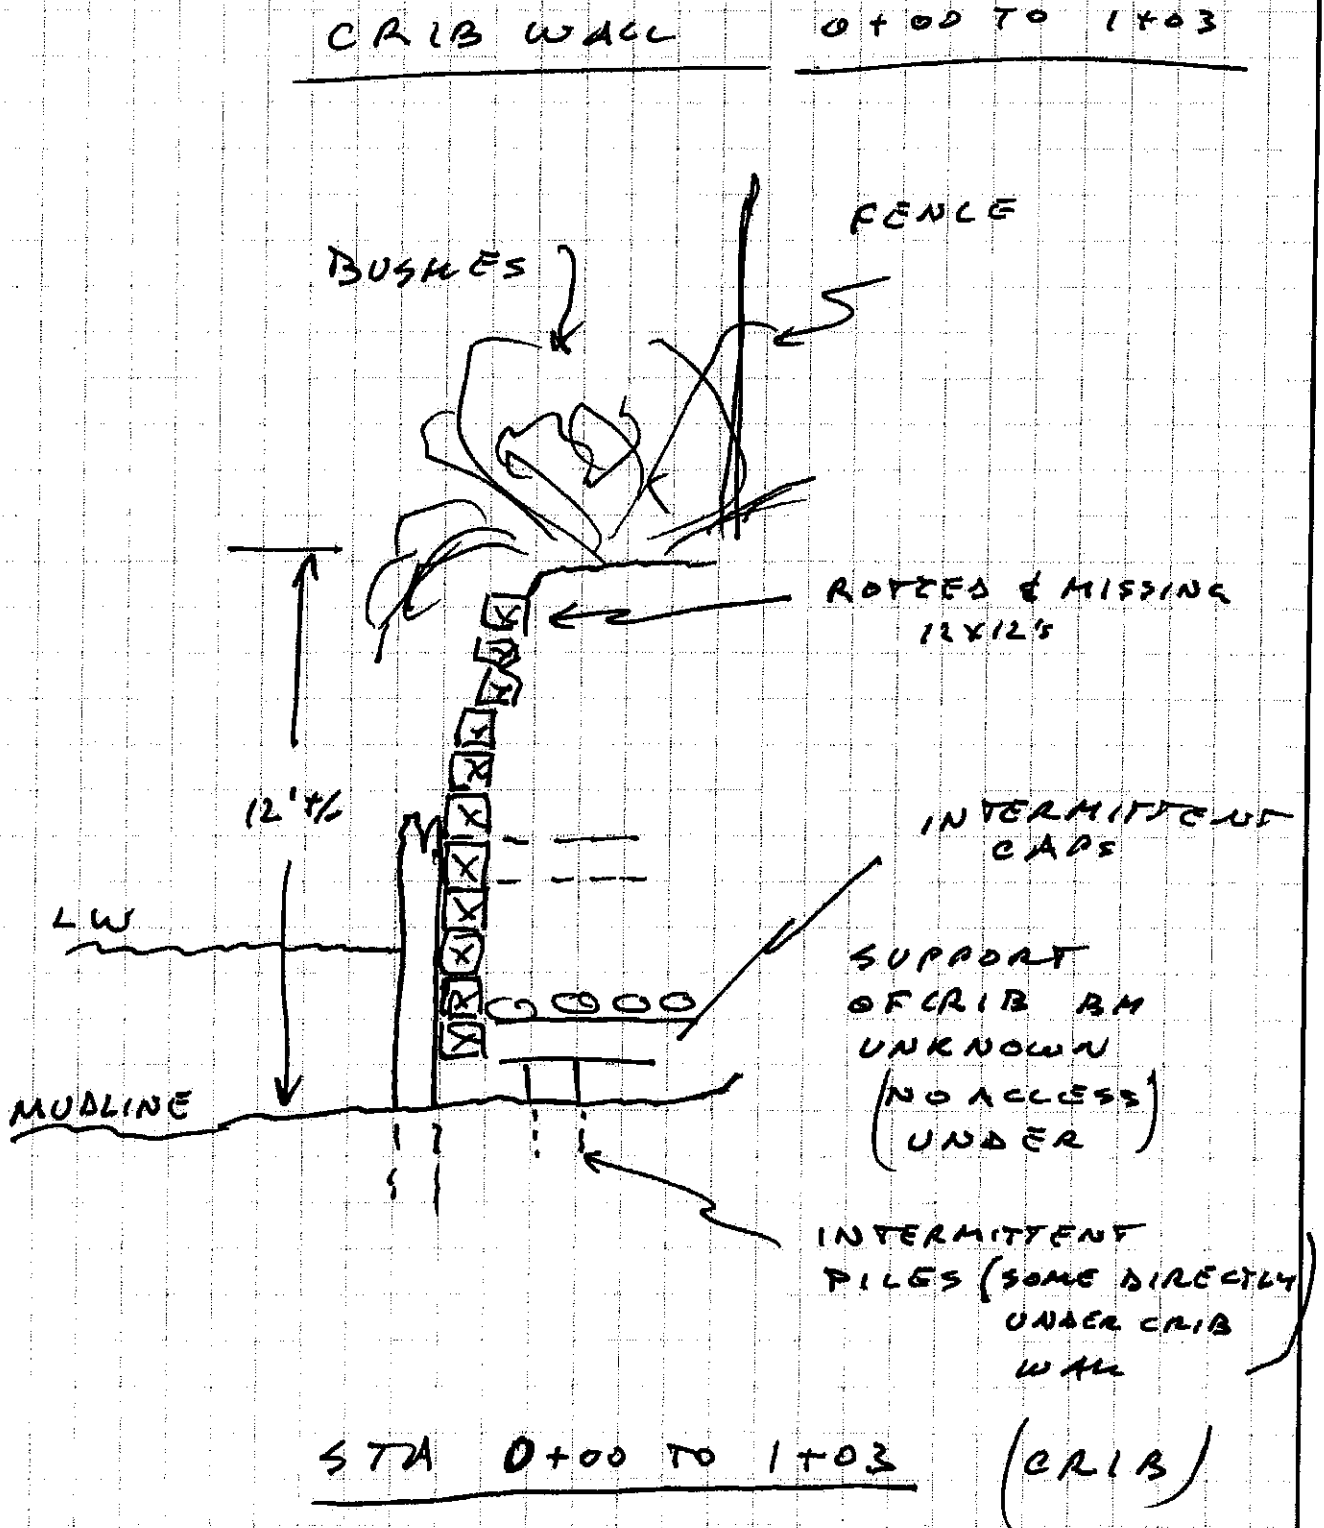 CRIB WALL 0+00 TO 1+03
FENCE
BUSHES
ROTTED & MISSING
12X12's
12' +/-
INTERMITTENT
CAPS
LW
SUPPORT
OF CRIB BM
UNKNOWN
(NO ACCESS
UNDER)
MUDLINE
INTERMITTENT
PILES (SOME DIRECTLY
UNDER CRIB
WALL)
STA 0+00 TO 1+03 (CRIB)